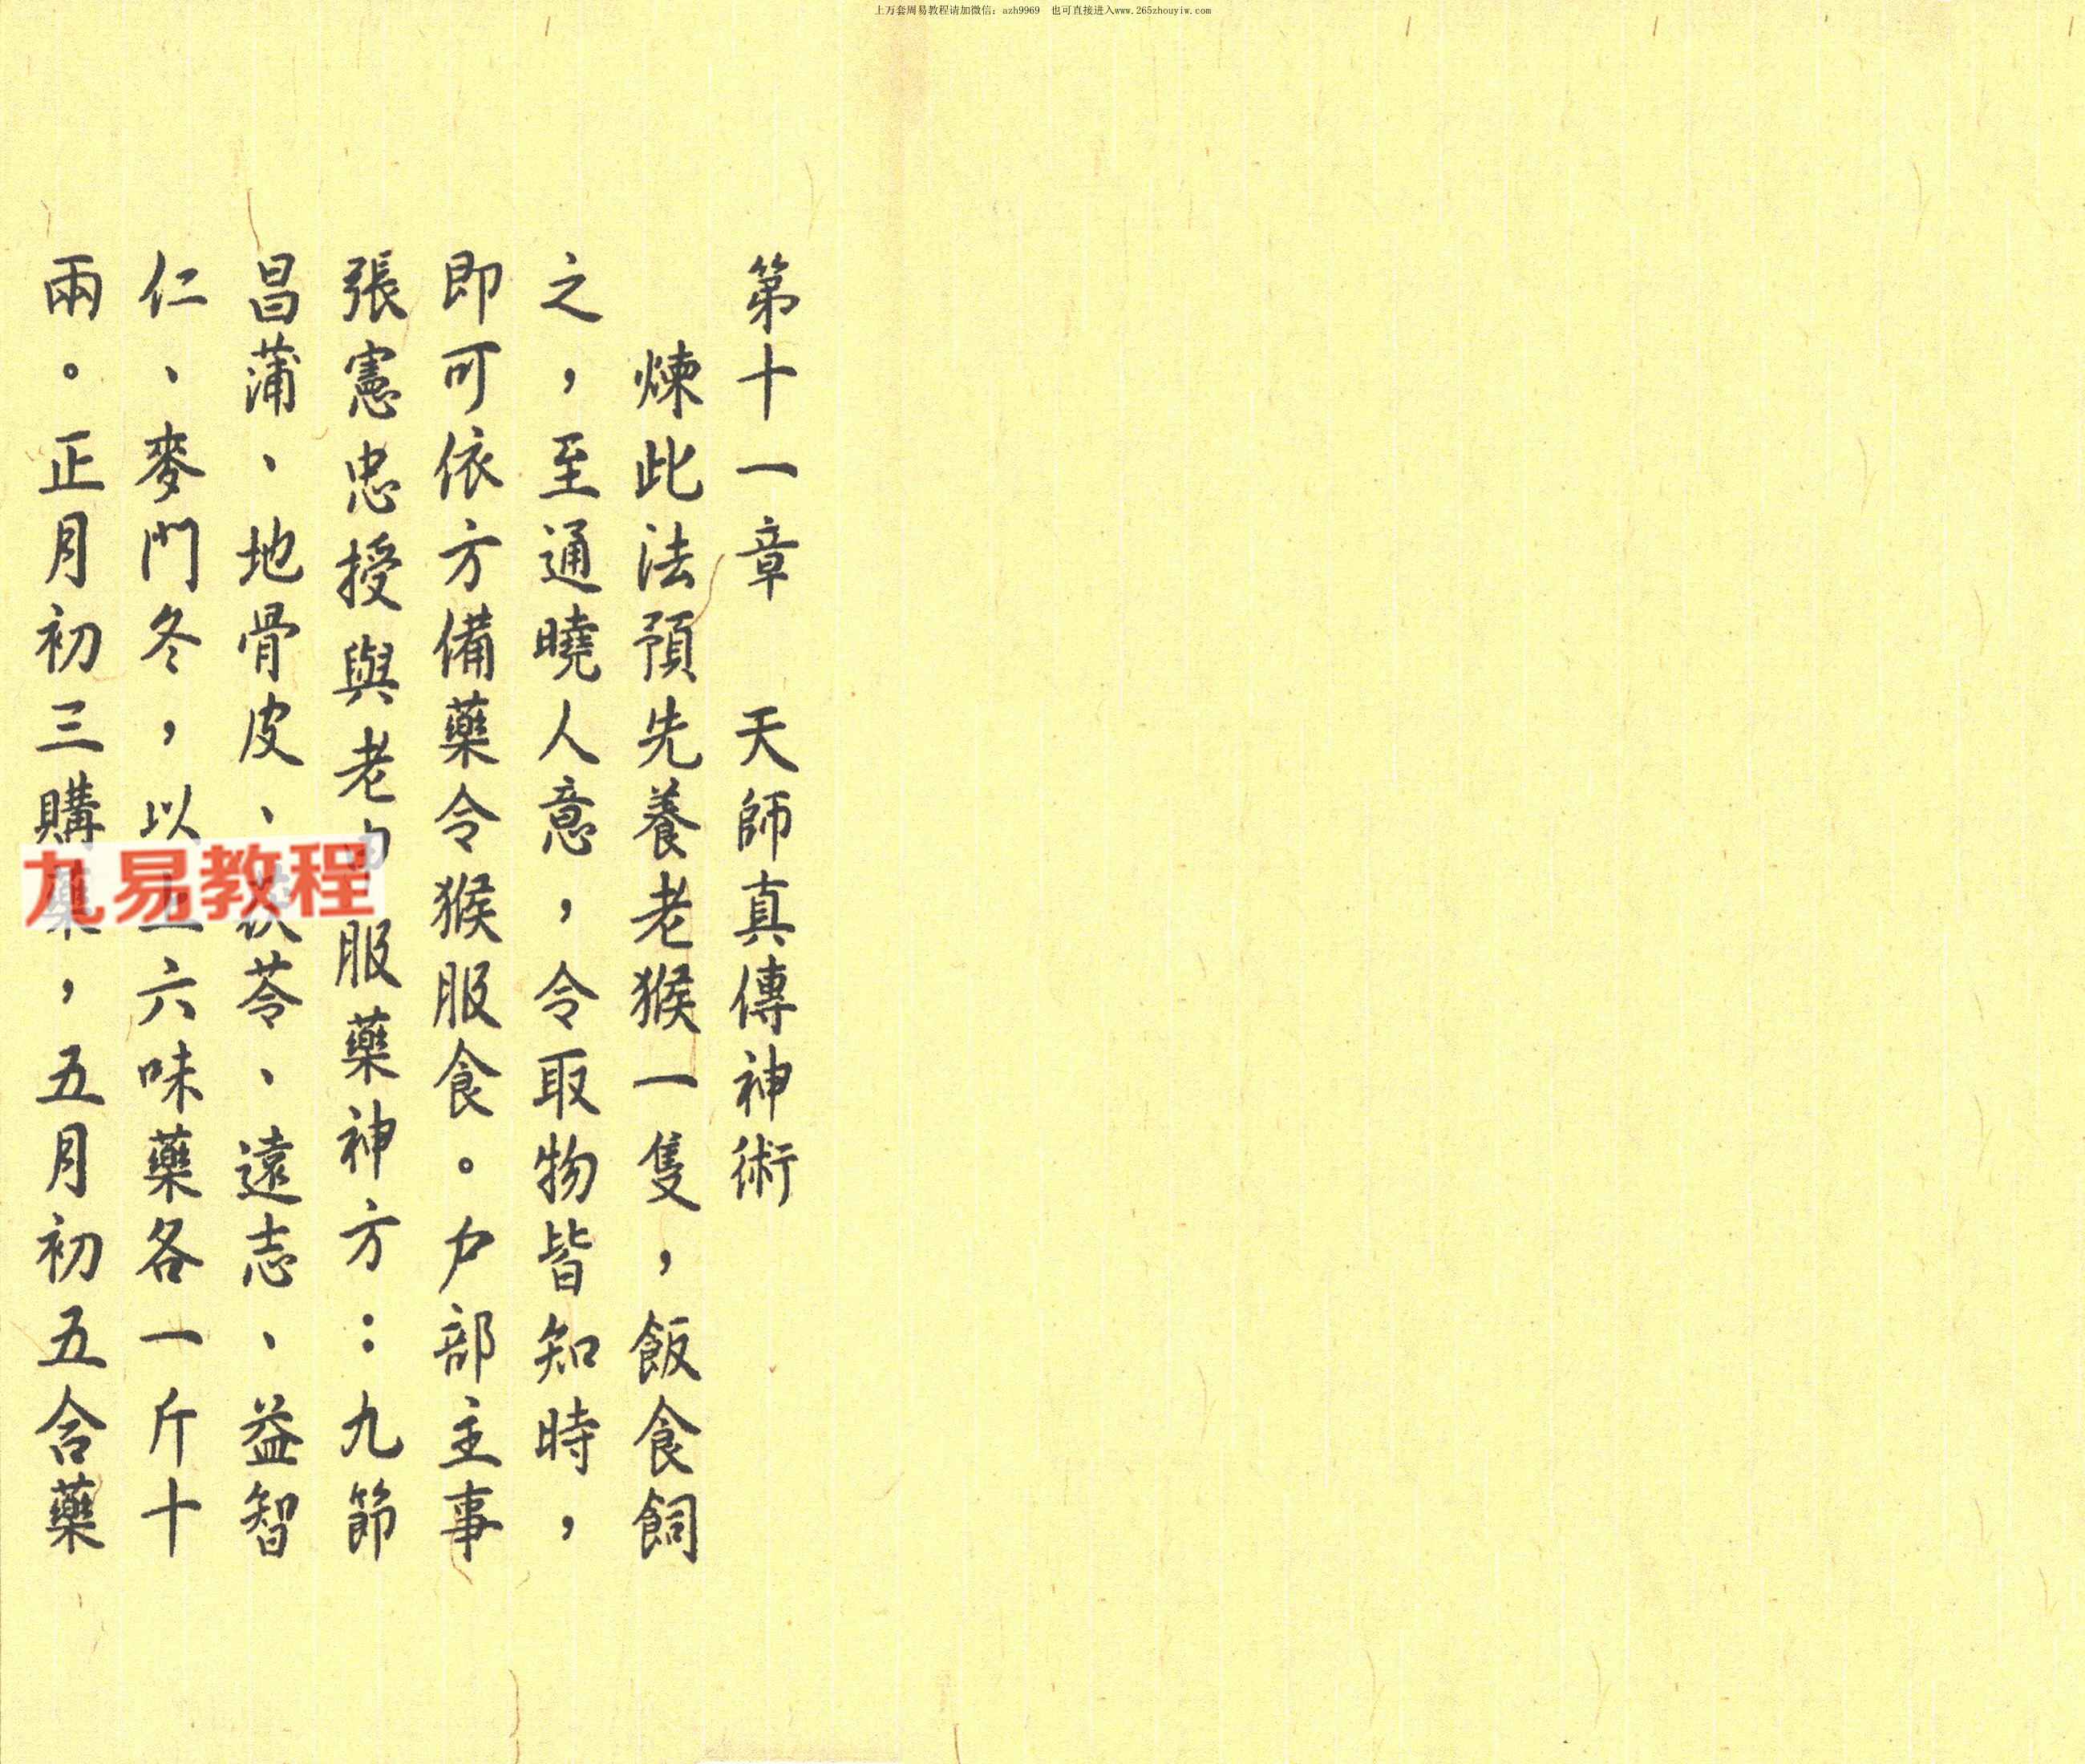 上万套周易教程请加微信：azh9969　也可直接进入www.265zhouyiw.com
第十一章　天師真傳神術
煉此法預先養老猴一隻，飯食飼
之，至通曉人意，令取物皆知時，
即可依方備藥令猴服食。户部主事
張憲忠授與老服藥神方：九節
昌蒲、地骨皮、茯苓、遠志、益智
仁、麥門冬，以上六味藥各一斤十
兩。正月初三購藥，五月初五合藥
九易教程